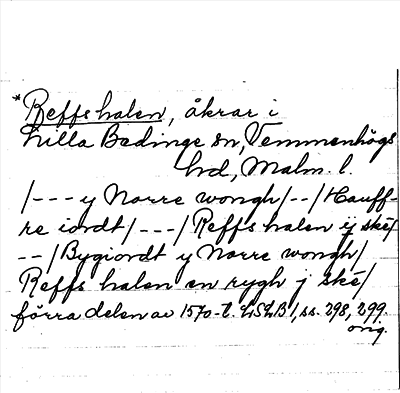 *Reffshalen, åkrar i
Lilla Bedinge sn, Vemmenhögs
hd, Malm. l.
/--- y Norre wongh/--/Hauff-
re iordt/---/Reffs halen ij ské/
--/Bygiordt y Norre wongh/
Reffs halen en rygh j ské/
förra delen av 1570-t. LSLB 1, ss. 298, 299.
orig.